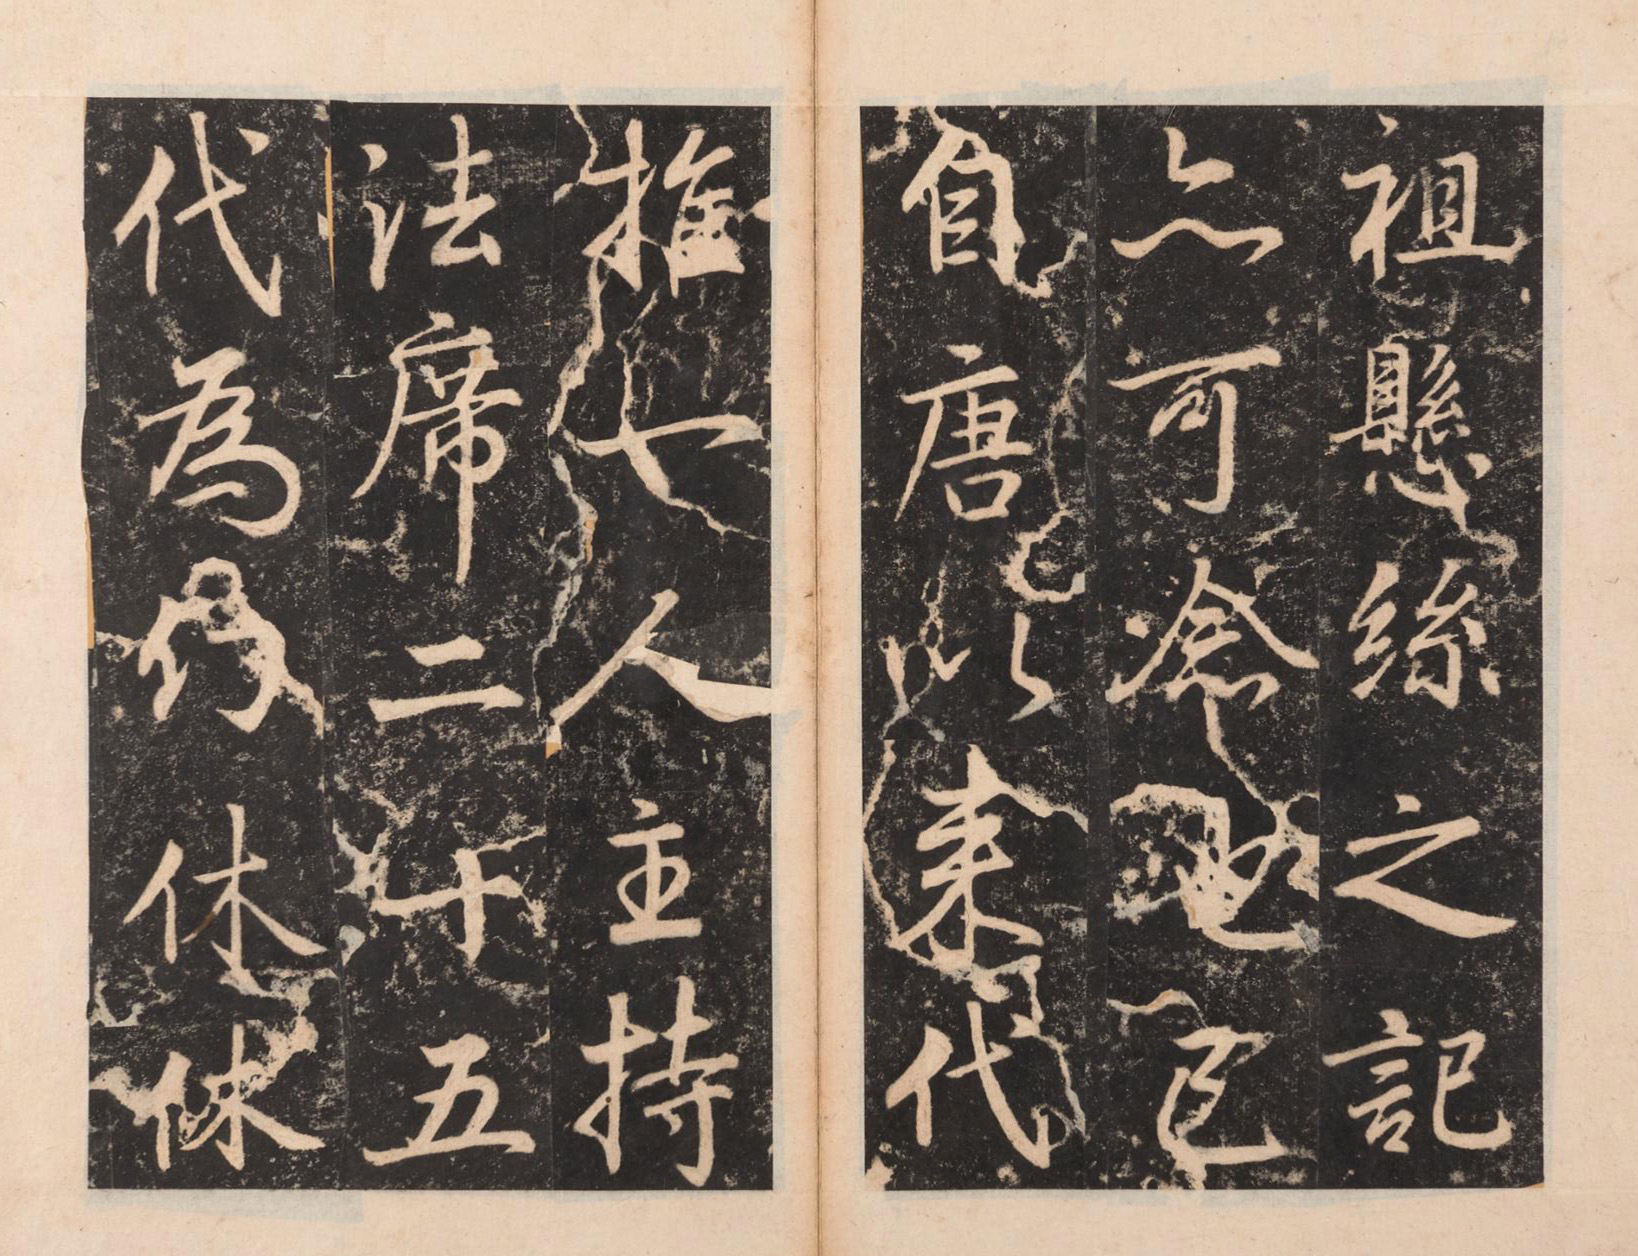 祖懸絲之記
亦可念也
自唐以來代
推七人主持
法席二十五
代為休休